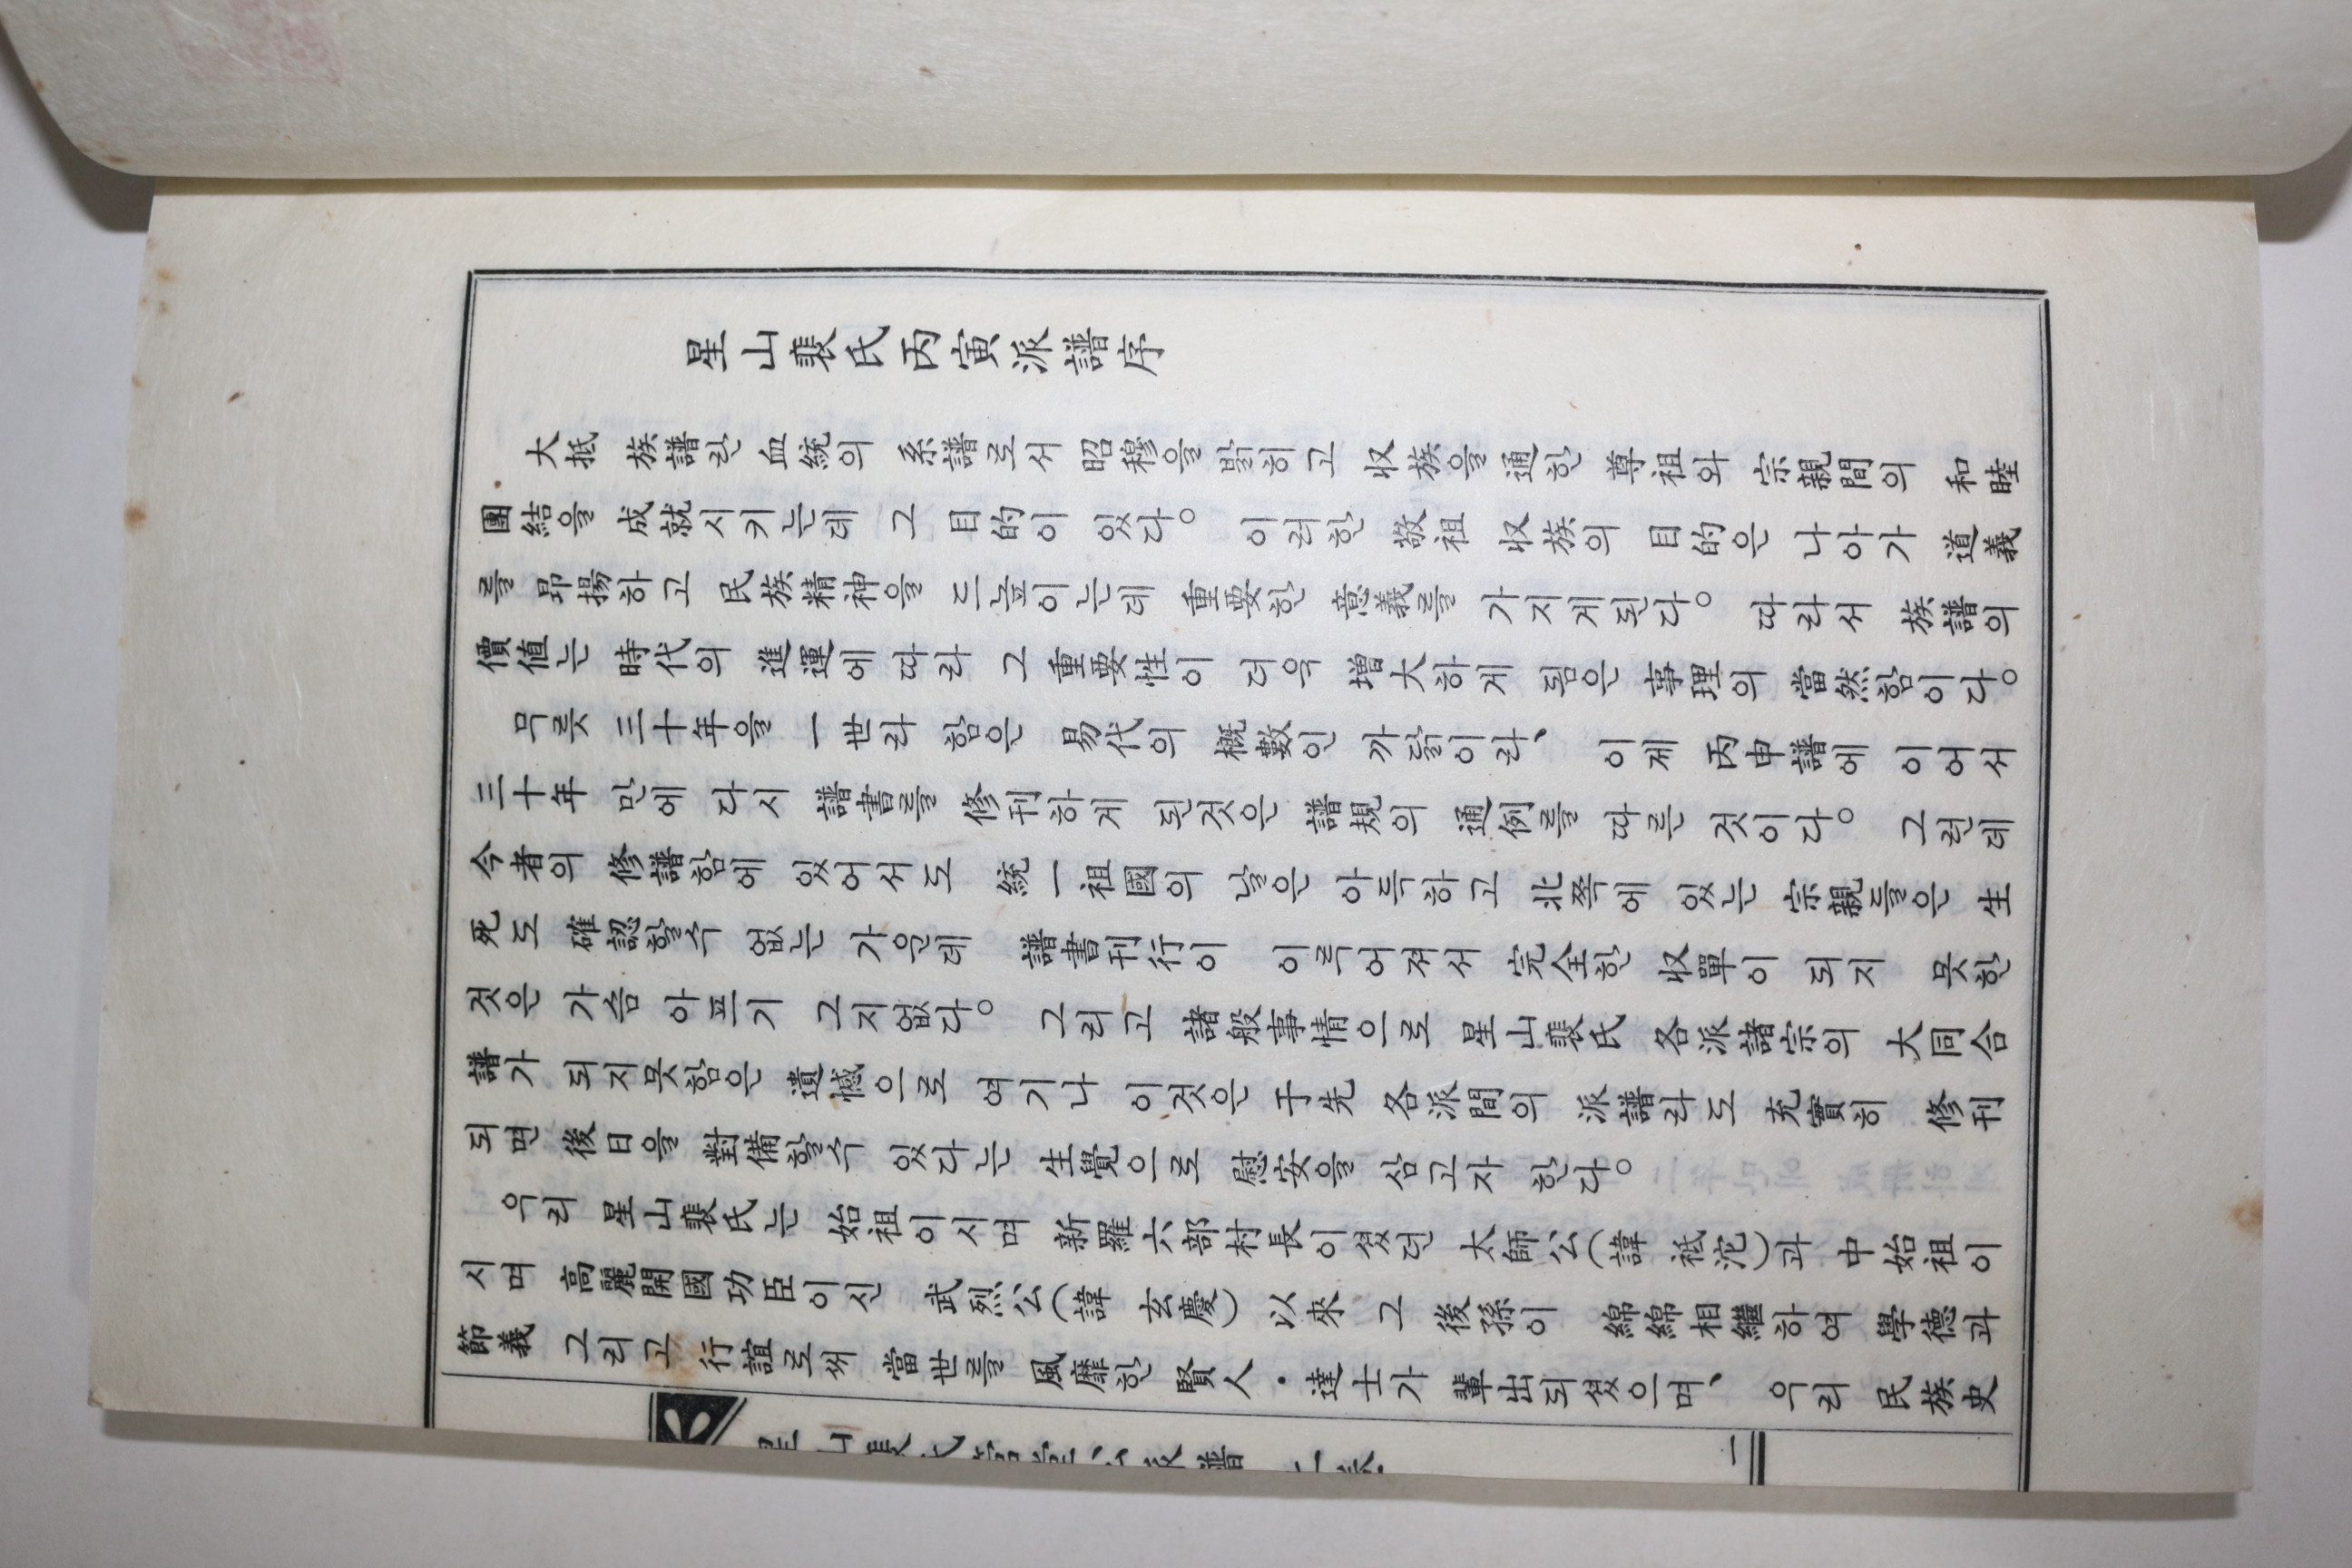 星山裴氏丙寅派譜序
大抵 族譜란 血統의 系譜로서 昭穆을 밝히고 收族을 通한 尊祖와 宗親間의 和睦
團結을 成就시키는데 그 目的이 있다。 이러한 敬祖 收族의 目的은 나아가 道義
를 昻揚하고 民族精神을 드높이는데 重要한 意義를 가지게된다。 따라서 族譜의
價値는 時代의 進運에 따라 그 重要性이 더욱 增大하게 됨은 事理의 當然함이다。
무릇 三十年을 一世라 함은 易代의 槪數인 까닭이라、 이제 丙申譜에 이어서
三十年 만에 다시 譜書를 修刊하게 된것은 譜規의 通例를 따른 것이다。 그런데
今者의 修譜함에 있어서도 統一祖國의 날은 아득하고 北쪽에 있는 宗親들은 生
死도 確認할수 없는 가운데 譜書刊行이 이루어져서 完全한 收單이 되지 못한
것은 가슴 아프기 그지없다。 그리고 諸般事情으로 星山裴氏 各派諸宗의 大同合
譜가 되지못함은 遺憾으로 여기나 이것은 于先 各派間의 派譜라도 充實히 修刊
되면 後日을 對備할수 있다는 生覺으로 慰安을 삼고자 한다。
우리 星山裴氏는 始祖이시며 新羅六部村長이셨던 太師公(諱 祗沱)과 中始祖이
시며 高麗開國功臣이신 武烈公(諱 玄慶) 以來 그 後孫이 綿綿相繼하여 學德과
節義 그리고 行誼로써 當世를 風靡한 賢人・達士가 輩出되셨으며、 우리 民族史
一